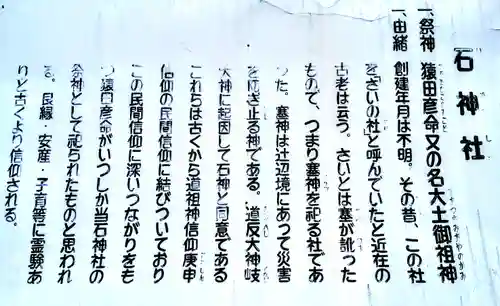 石神社
一、祭神 猿田彦命又の名大土御祖神
一、由緒 創建年月は不明。その昔、この社
を「さいの社」と呼んでいたと近在の
古老は云う。さいとは塞が訛った
もので、つまり塞神を祀る社であ
った。塞神は辻辺境にあって災害
を防ぎ止る神である。道反大神岐
大神に起因して石神と同意である
これらは古くから道祖神信仰庚申
信仰の民間信仰に結びついており
この民間信仰に深いつながりをも
つ猿田彦命がいつしか当石神社の
祭神として祀られたものと思われ
る。良縁・安産・子育等に霊験あ
りと古くより信仰される。